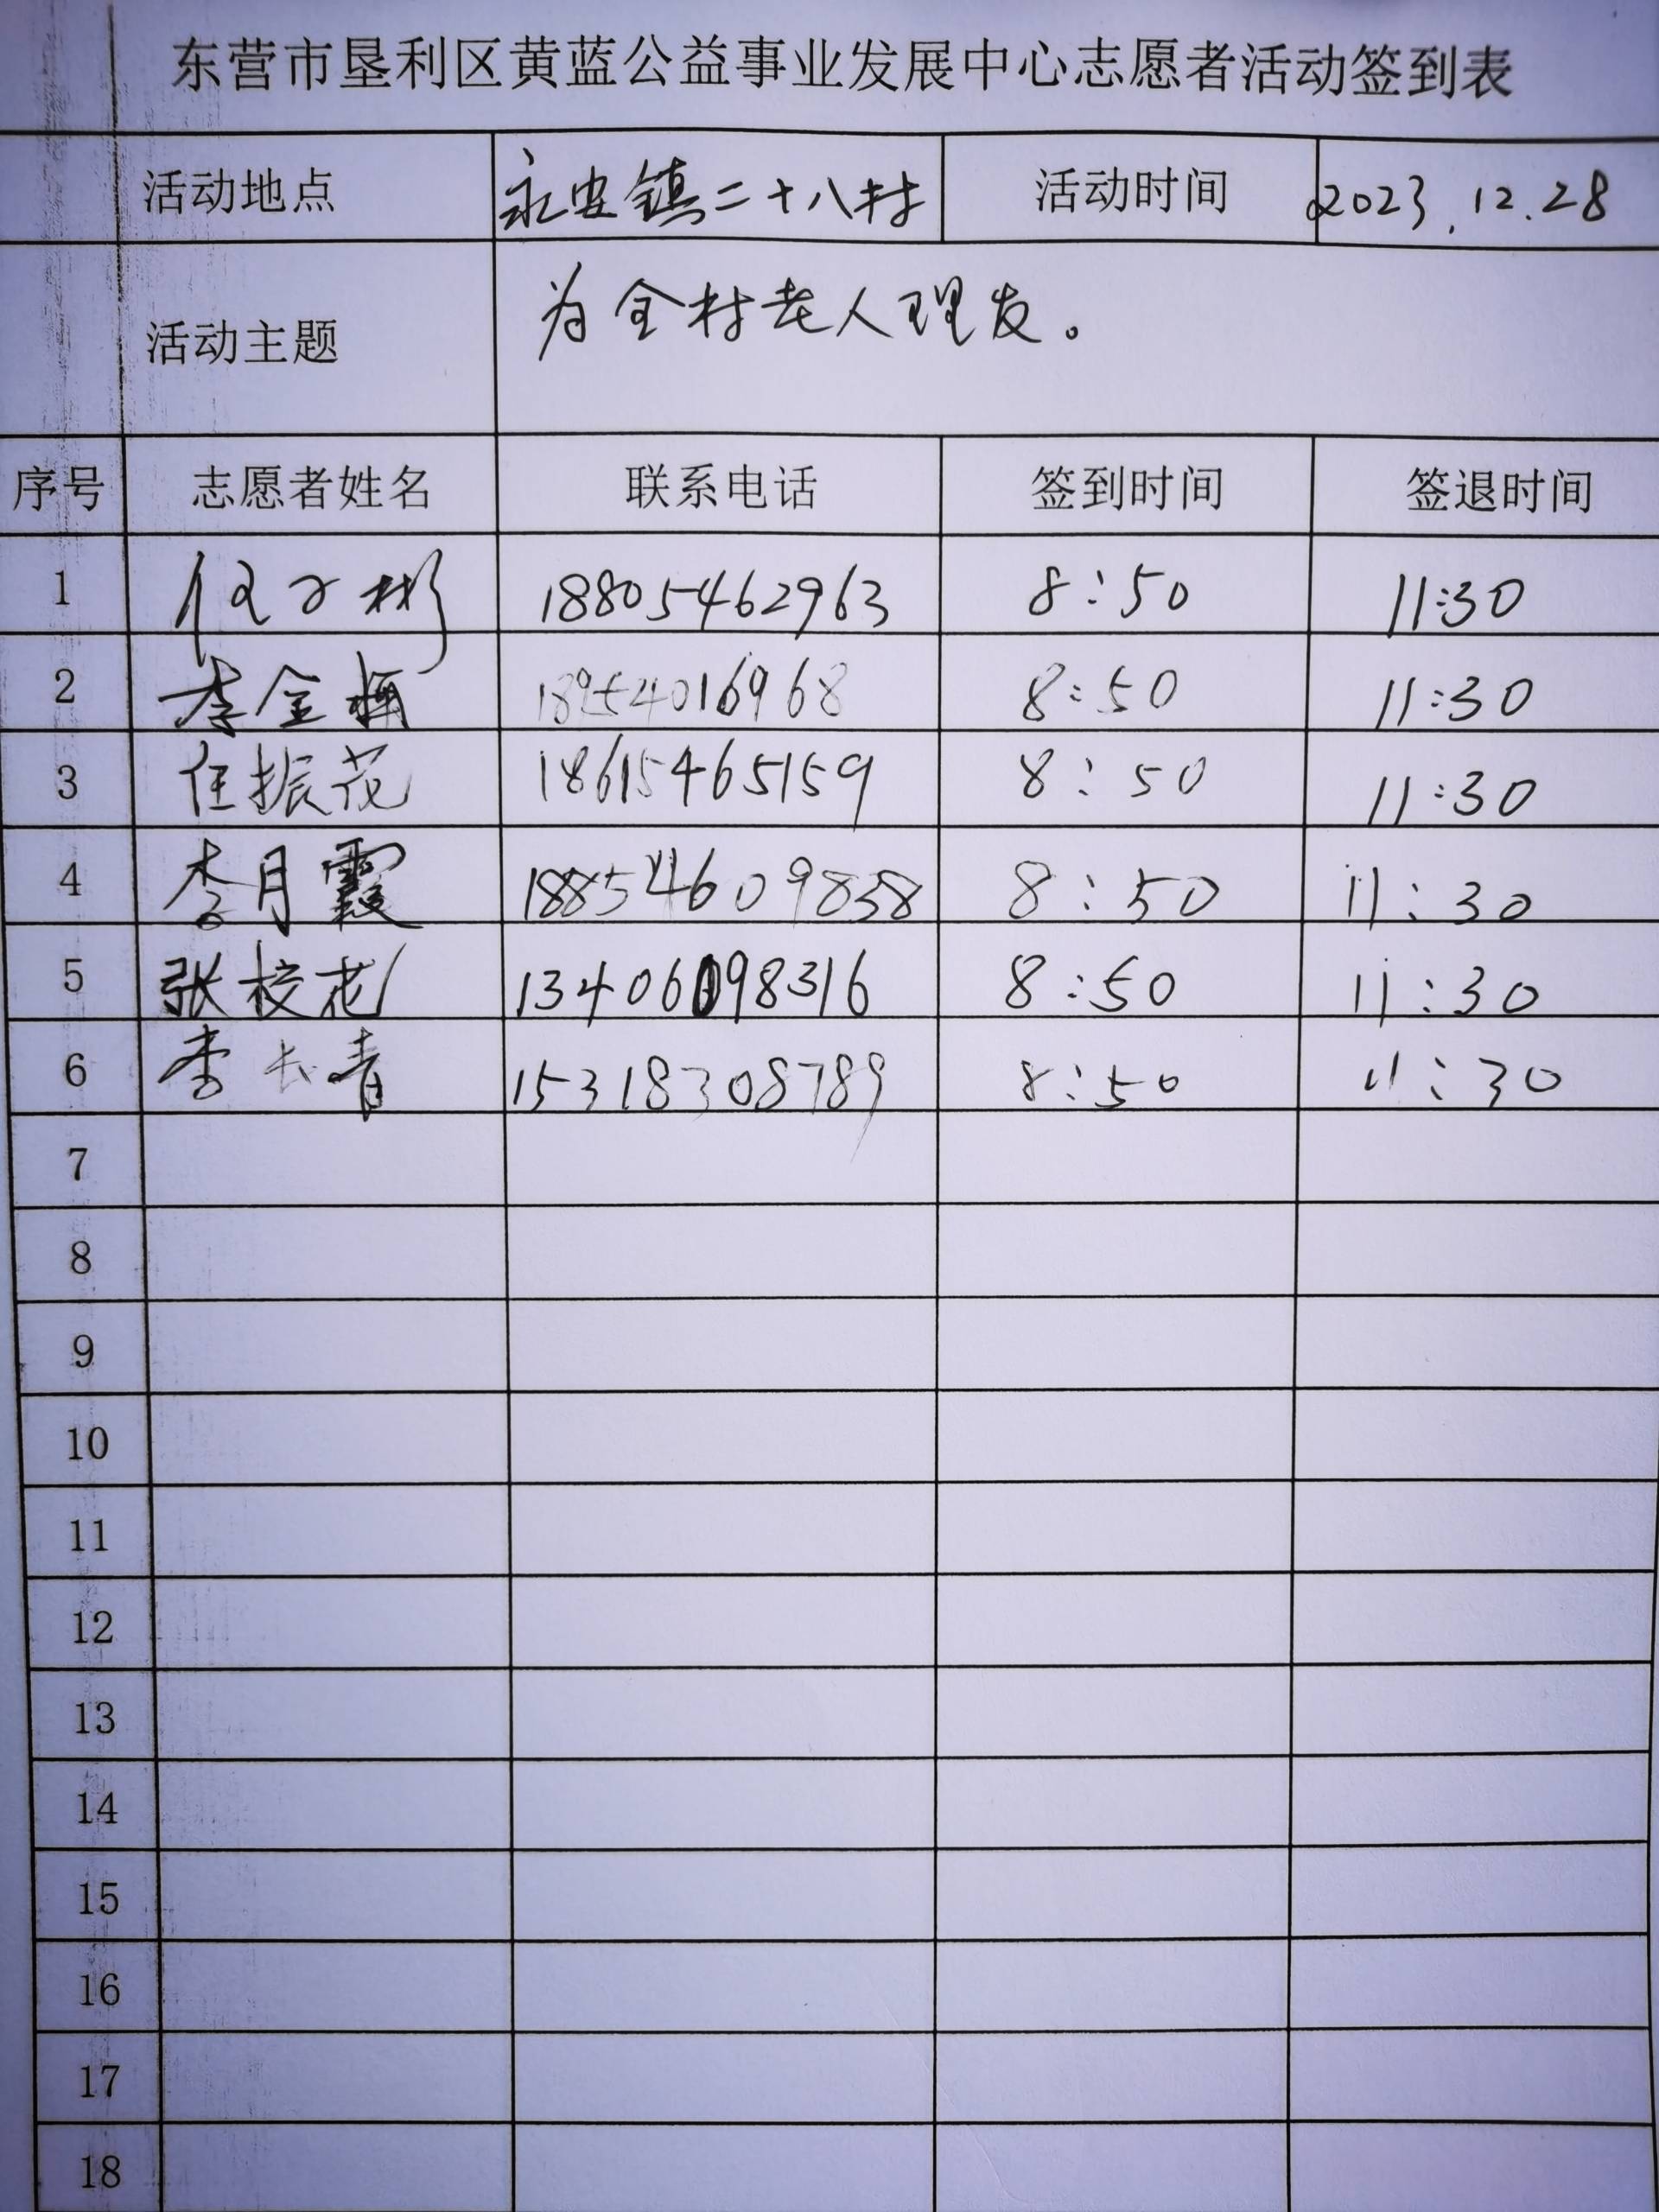 东营市垦利区黄蓝公益事业发展中心志愿者活动签到表
活动地点 永安镇二十八村 活动时间 2023.12.28
活动主题 为全村老人理发。
序号 志愿者姓名 联系电话 签到时间 签退时间
1 18805462963 8:50 11:30
2 李金梅 18954016968 8:50 11:30
3 任振花 18615465159 8:50 11:30
4 李月霞 18854609838 8:50 11:30
5 张校花 13406098316 8:50 11:30
6 李长青 15318308789 8:50 11:30
7
8
9
10
11
12
13
14
15
16
17
18